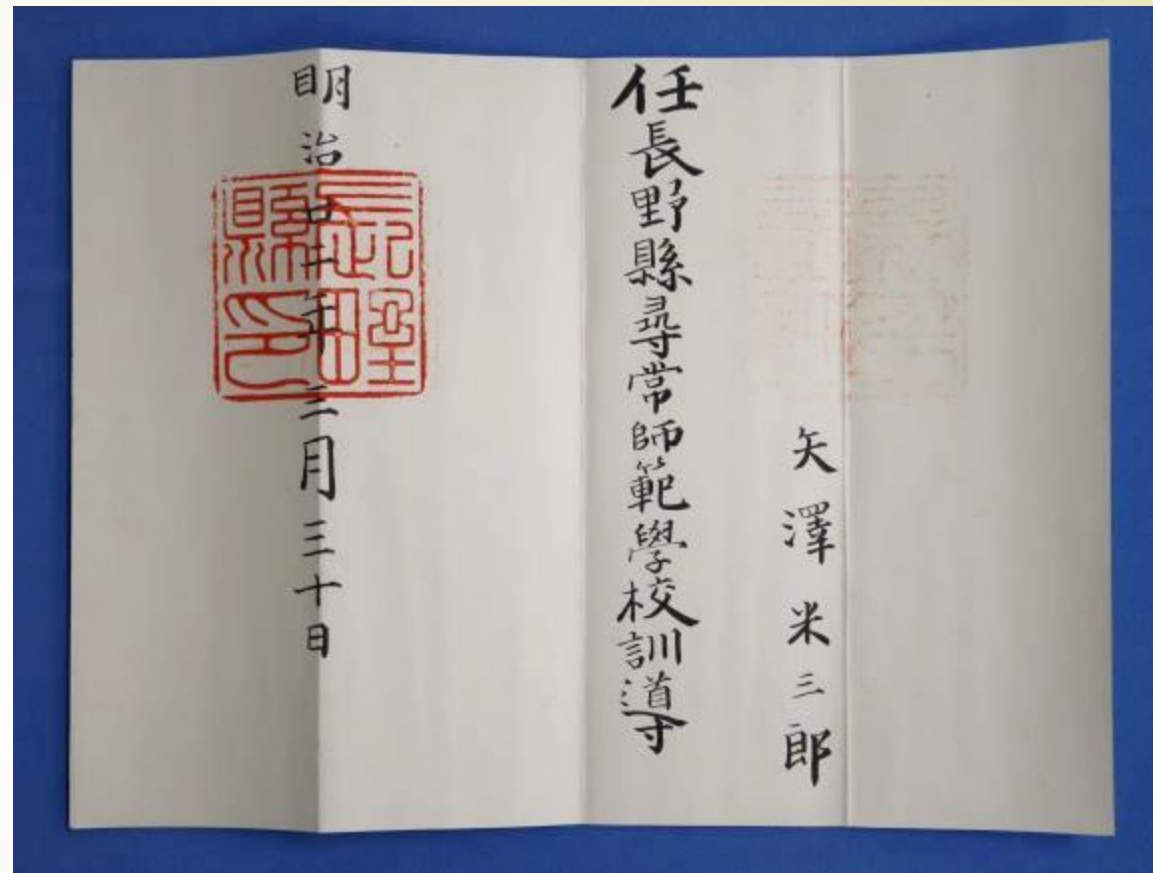 矢澤米三郎
任長野縣尋常師範學校訓導
明治廿二年三月三十日
長野縣印